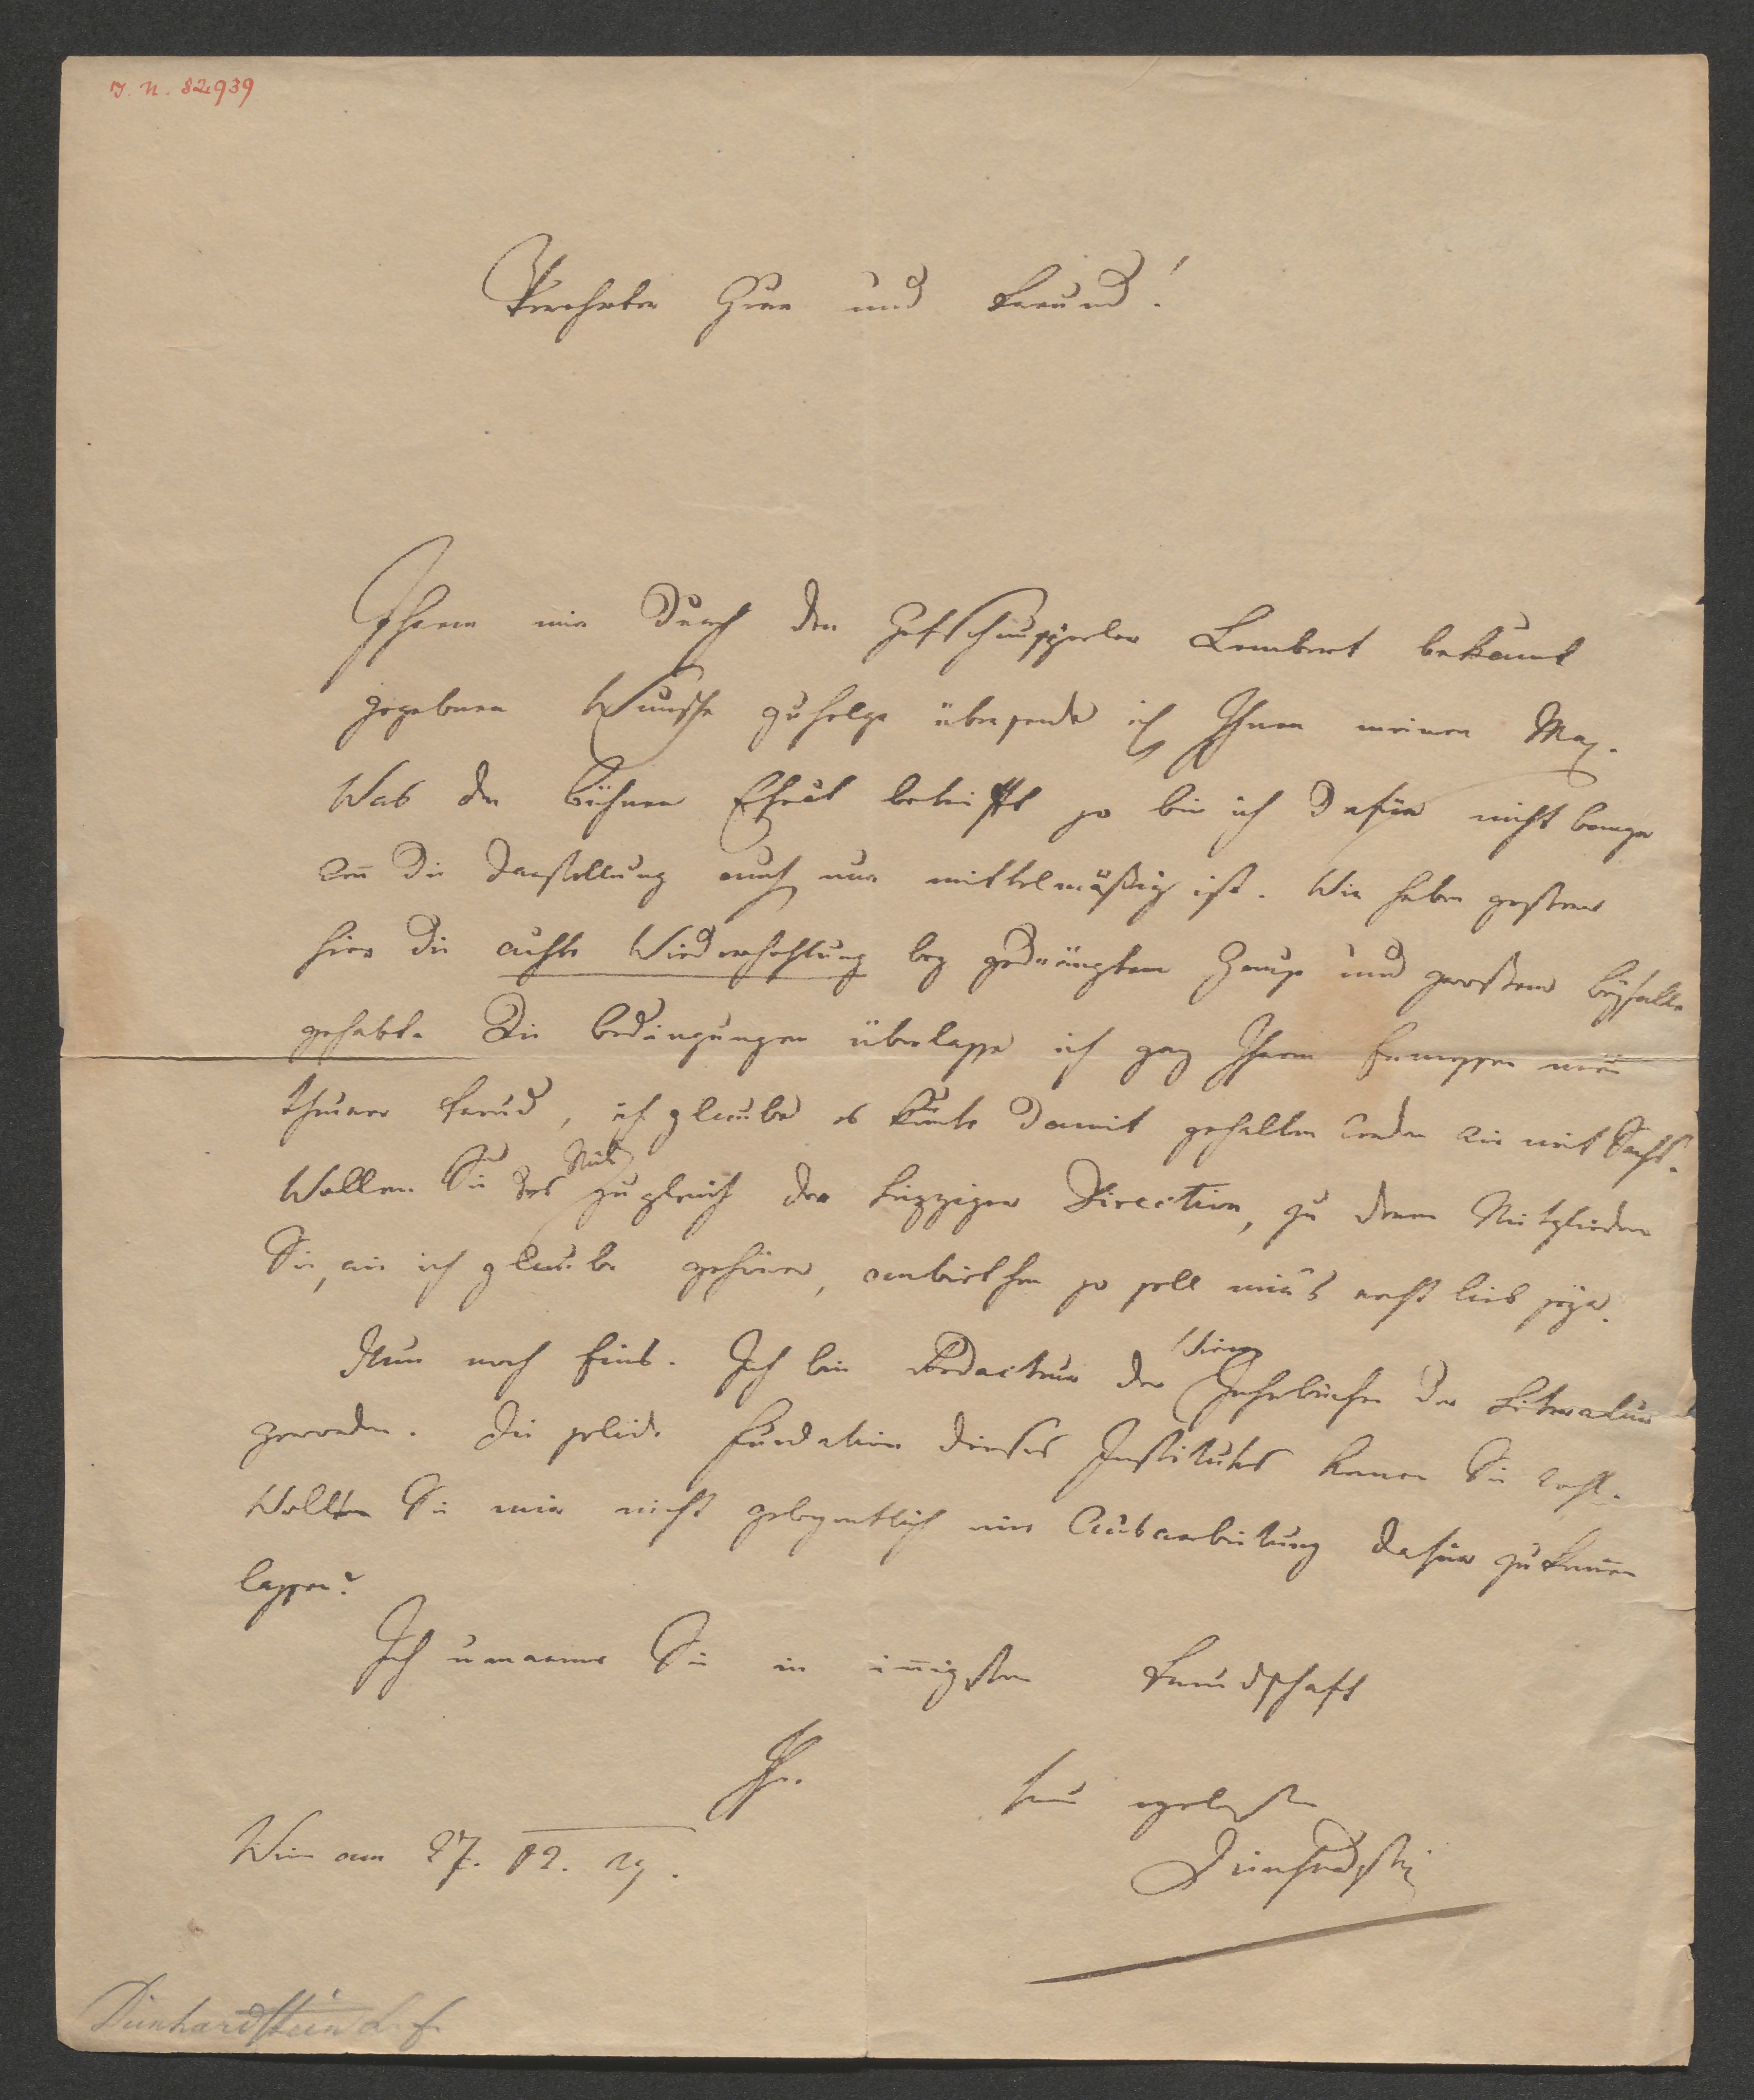 J. N. 82.939
Verehrter Herr und Freund!
Ihrem mir durch den Hofschauspieler Lembert bekañt
gegebenen Wunsche zufolge übersende ich Ihnen meinen Max.
Was den Bühnen Effect betrifft so bin ich dafür nicht bange
weñ die Darstellung auch nur mittelmäßig ist. Wir haben gestern
hier die achte Wiederhohlung bey gedrängtem Hause und großem Beyfalle
gehabt. Die Bedingungen überlasse ich ganz Ihrem Ermessen mein
theurer Freund, ich glaube es köñte damit gehalten werden wie mit Sachs.
Wollen Sie das Stück zugleich der Leipziger Direction, zu deren Mitgliedern
Sie, wie ich glaube gehören, anbiethen so soll mirs recht lieb seyn.
Nun noch Eins. Ich bin Redacteur der Wiener Jahrbücher der Literatur
geworden. Die solide Fundation dieses Institutes kennen Sie wohl.
Wollten Sie mir nicht gelegentlich eine Ausarbeitung dafür zukom̃en
lassen?
Ich umarme Sie in iñigster Freundschaft
Ihr
treu ergebenster
Deinhardstein
Wien am 27. 12. 29.
Deinhardstein L. F.